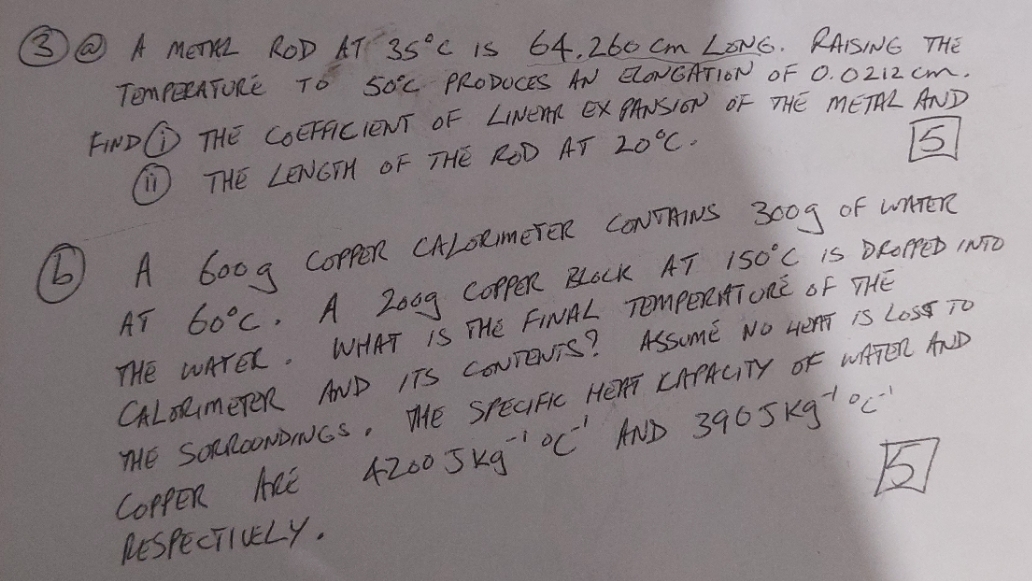 3 a A METAL ROD AT 35°C IS 64.260 cm LONG. RAISING THE
TEMPERATURE TO 50°C PRODUCES AN ELONGATION OF 0.0212 cm.
FIND i THE COEFFICIENT OF LINEAR EXPANSION OF THE METAL AND
ii THE LENGTH OF THE ROD AT 20°C. 5
b A 600g COPPER CALORIMETER CONTAINS 300g OF WATER
AT 60°C. A 200g COPPER BLOCK AT 150°C IS DROPPED INTO
THE WATER. WHAT IS THE FINAL TEMPERATURE OF THE
CALORIMETER AND ITS CONTENTS? ASSUME NO HEAT IS LOSS TO
THE SORROONDINGS. THE SPECIFIC HEAT KAPACITY OF WATER AND
COPPER ARE 4200 J kg⁻¹ °C⁻¹ AND 390 J kg⁻¹ °C⁻¹
RESPECTIVELY. 5